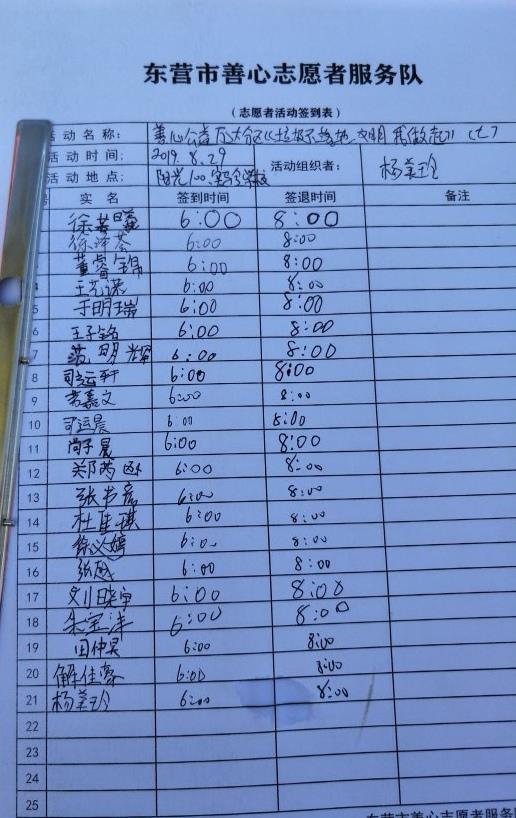 东营市善心志愿者服务队
（志愿者活动签到表）
活动名称： 善心公益万达分区《垃圾不落地 文明
活动时间： 2019.8.29 活动组织者： 杨美玲
活动地点： 阳光100、实验学校
实名 签到时间 签退时间 备注
6:00 8:00
6:00 8:00
董睿锦 6:00 8:00
6:00 8:00
5 于明瑞 6:00 8:00
6 王子铭 6:00 8:00
7 范明辉 6:00 8:00
8 司运轩 6:00 8:00
9 嘉文 6:00 8:00
10 司运晨 6:00 8:00
11 尚子晨 6:00 8:00
12 郑 6:00 8:00
13 张书彦 6:00 8:00
14 杜佳琪 6:00 8:00
15 徐义婷 6:00 8:00
16 张 6:00 8:00
17 刘晓宇 6:00 8:00
18 朱宝洋 6:00 8:00
19 田仲昊 6:00 8:00
20 解佳豪 6:00 8:00
21 杨美玲 6:00 8:00
22
23
24
25
东营市善心志愿者服务队